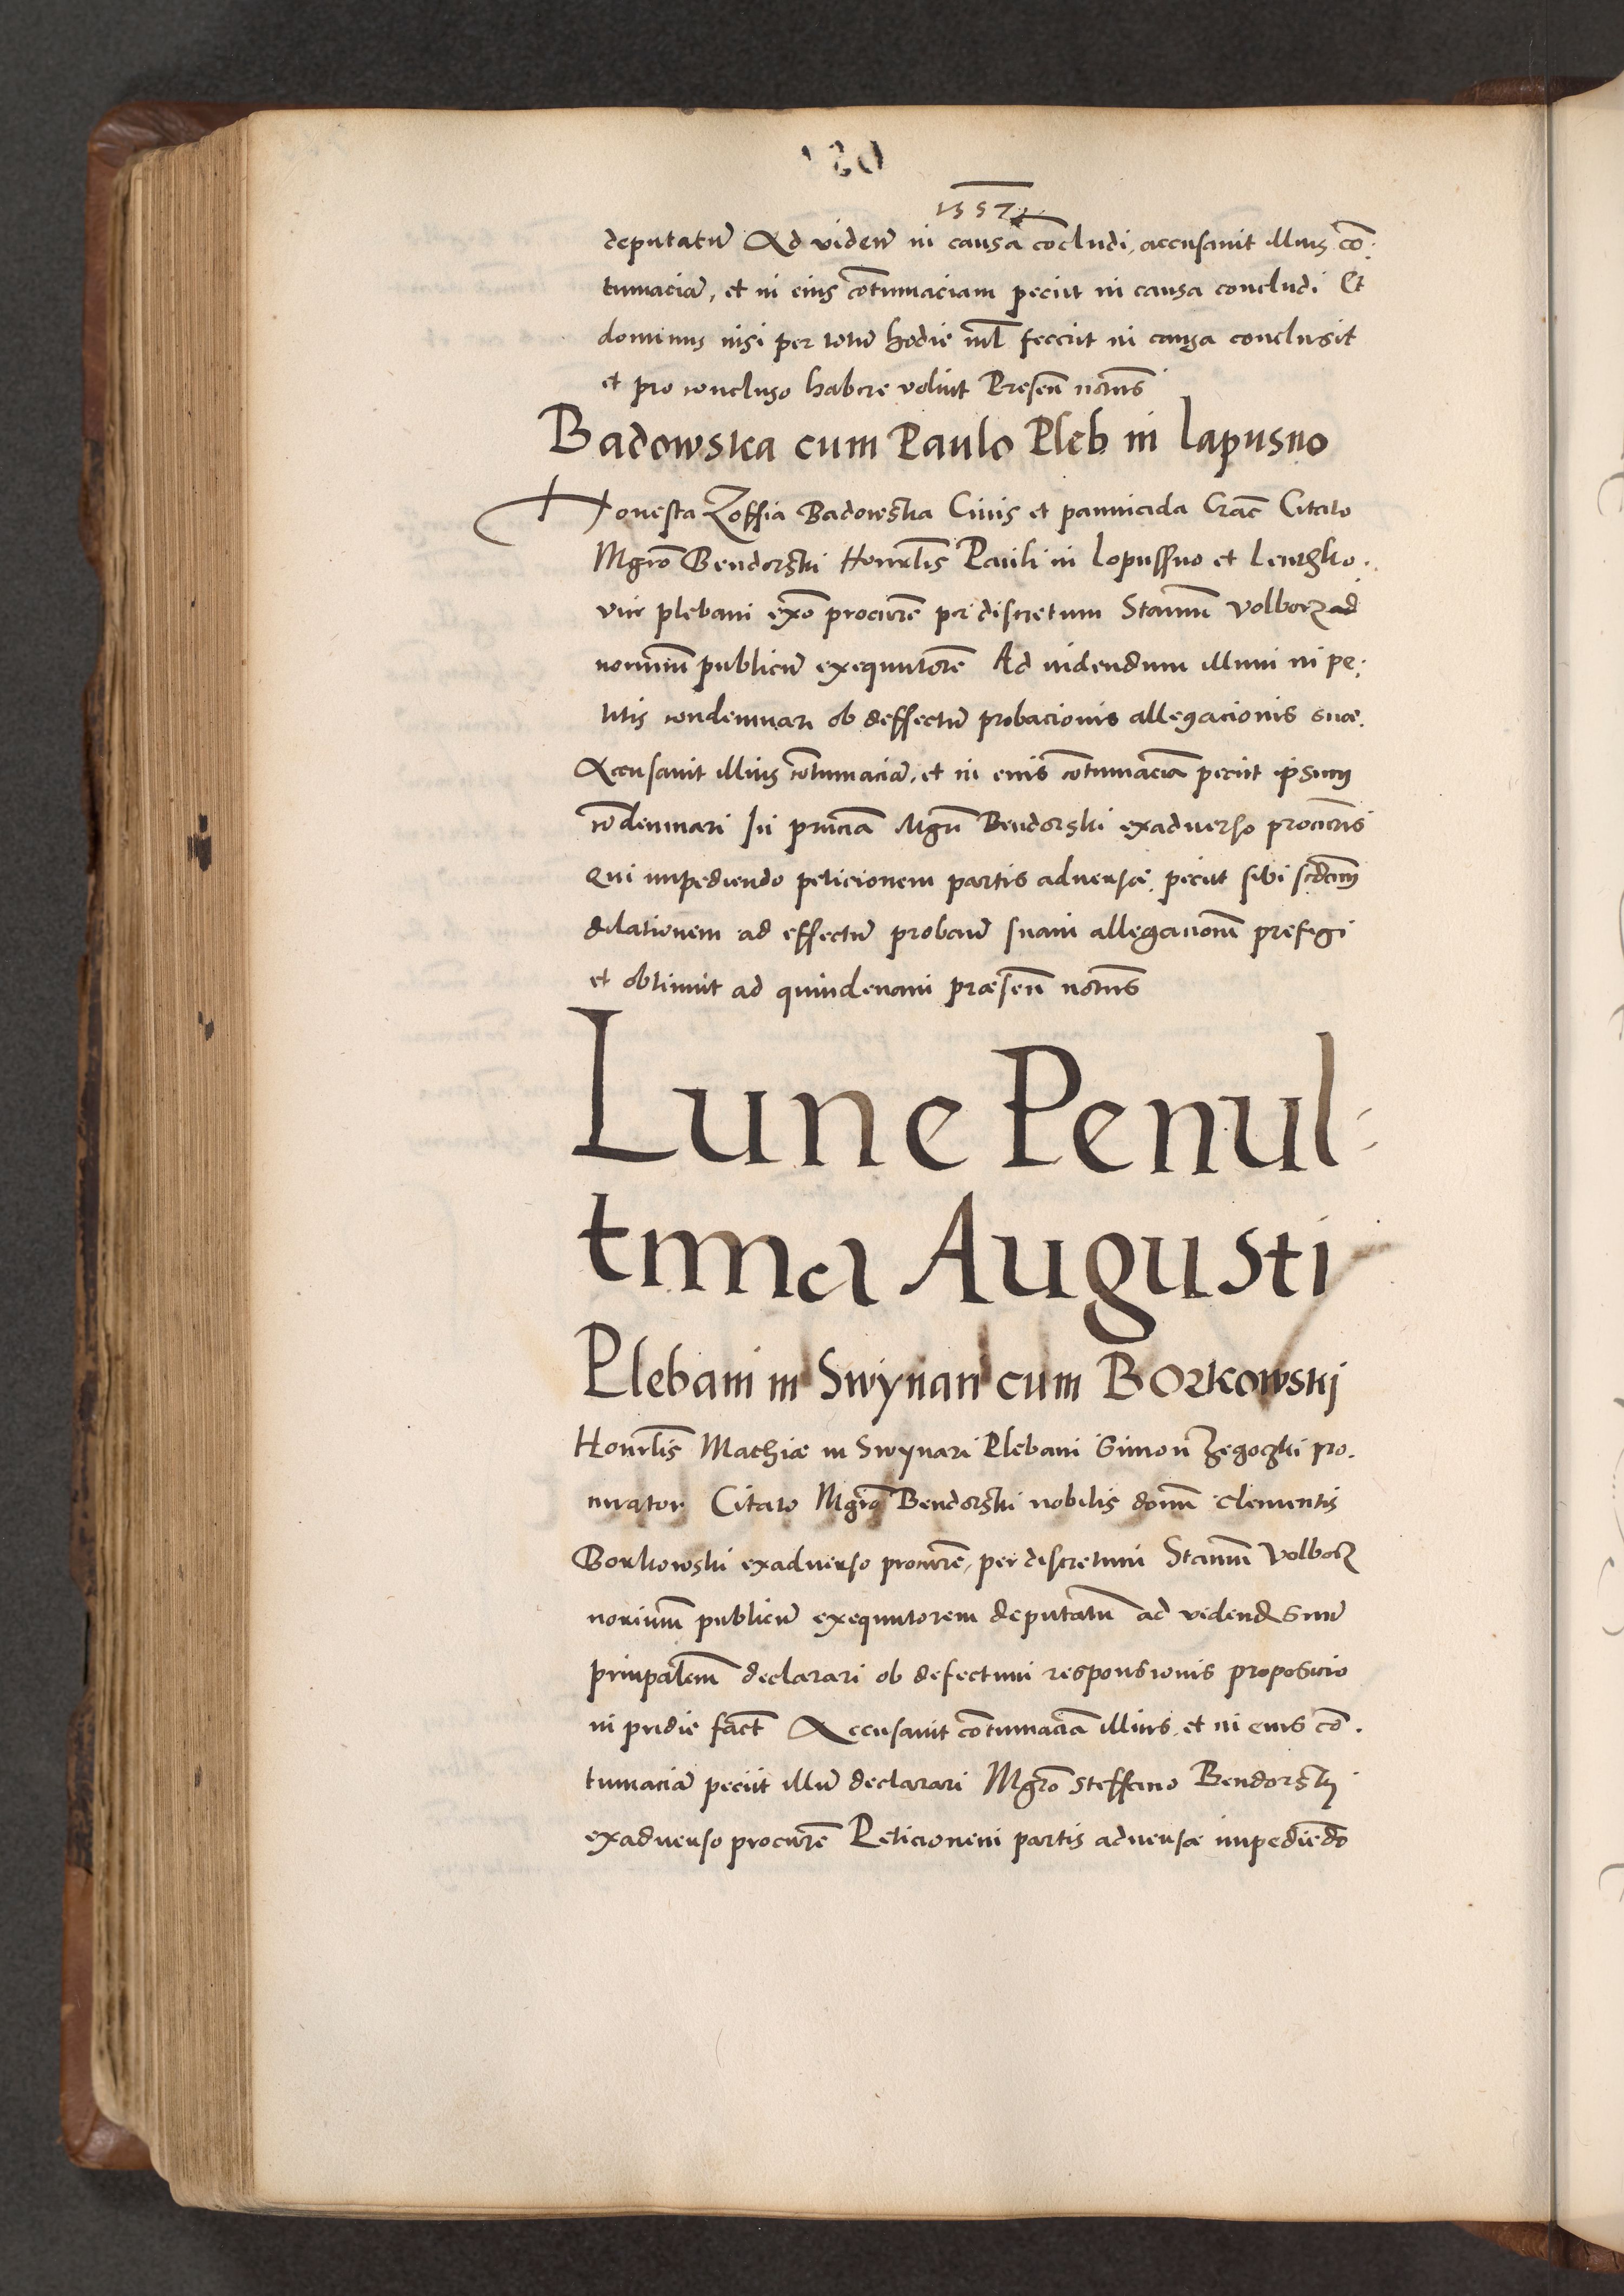 1557
deputatũ Ad videñ in causa cõcludi, accusavit illius cõ.
tumaciã, et in eius cõtumaciam peciit in causa concludi Et
dominus nisi per totũ hodie nil̃ fecerit in causa conclusit
et pro concluso habere voluit Preseñ notariis
Badowska cum Paulo Pleb in Lapusno
Honesta Zoffia Badowska Civis et pannicida Crac̃ Citato
Mgro Bendorski Honrlis Pauli in Lopussno et
plebani exõ procurẽ per discretum Stanm̃ Volborz ad
norium̃ publicũ exequutorẽ Ad videndum illum in pe.
titis condemnari ob deffectũ probacionis allegacionis suae.
Accusavit illius cõtumaciã, et in eius cõtumaciam peciit ipsum
cõdemnari In pn̄cia Mgri Bendorski exadverso procuris
Qui impediendo peticionem partis adversae, peciit sibi scdam
dilationem ad effectũ proband suam allegacionem̃ prefigi
et obtinuit ad quindenam praeseñ notis
Lune Penul-
tima Augusti
Plebani in Swynari cum Borkowskj
Honrlis Mathiae in Swynari Plebani Simon Zegoczki pro.
curator Citato Mgro Bendorski nobilis domñ Clementis
Borkowski exadverso procurẽ, per discretum Stanm̃ Volborz
norium̃ publicũ exequutorem deputatum̃ ad videnđ suũ
prinpalem̃ declarari ob defectum responsionis proposicio
ni pridie fact̃ Accusavit cõtumaciã illius, et in eius cõ.
tumaciã peciit illũ declarari Mgro Steffano Bendorskj
exadverso procurẽ Peticionem partis adversae impediẽdo